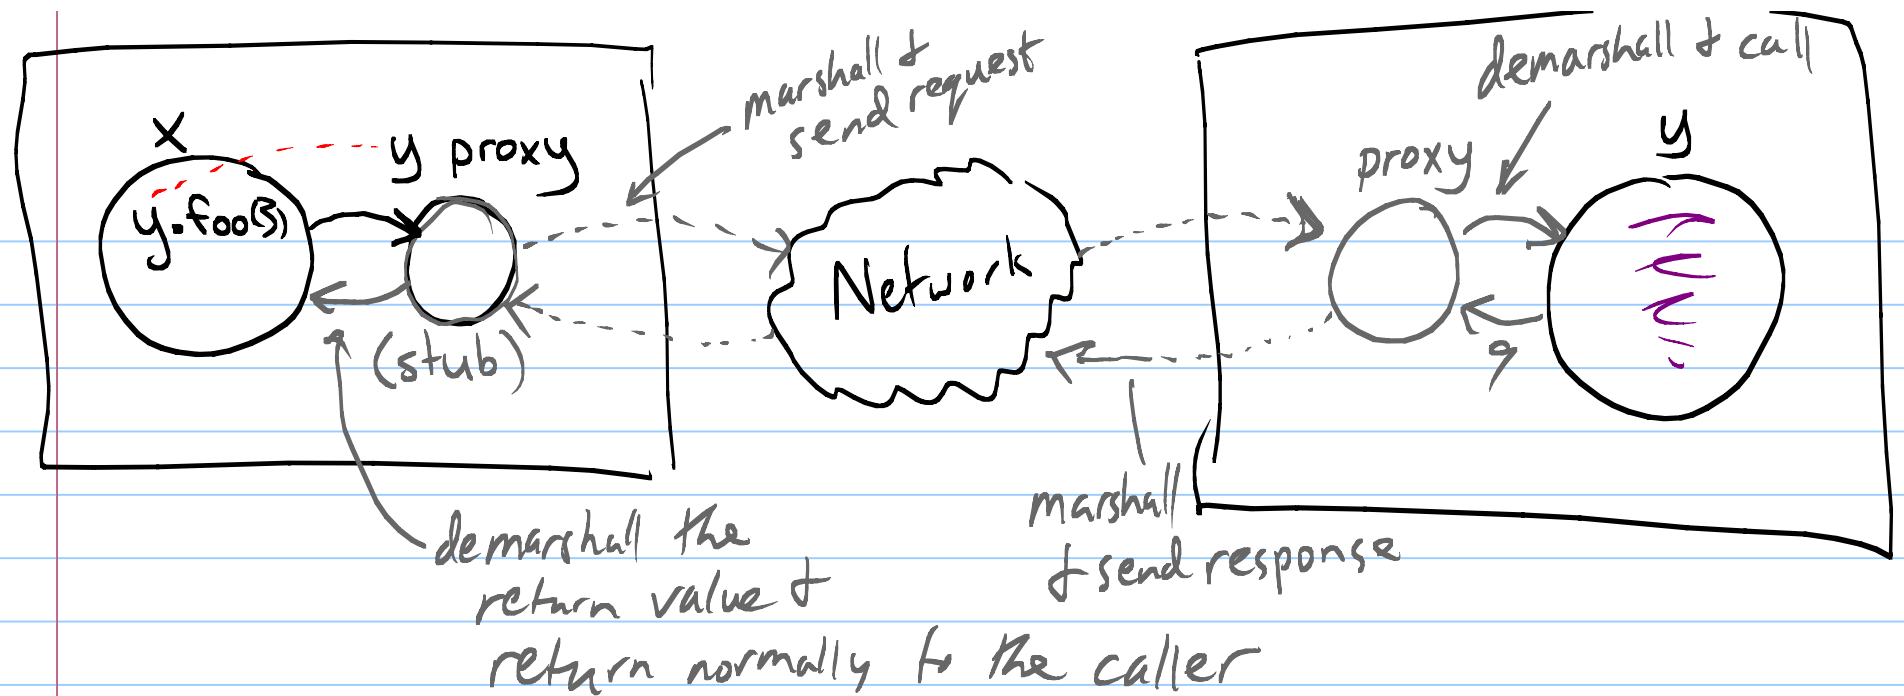 x
y.foo(3)
y proxy
(stub)
marshall &
send request
Network
demarshall & call
proxy
y
9
marshall
& send response
demarshall the
return value &
return normally to the caller